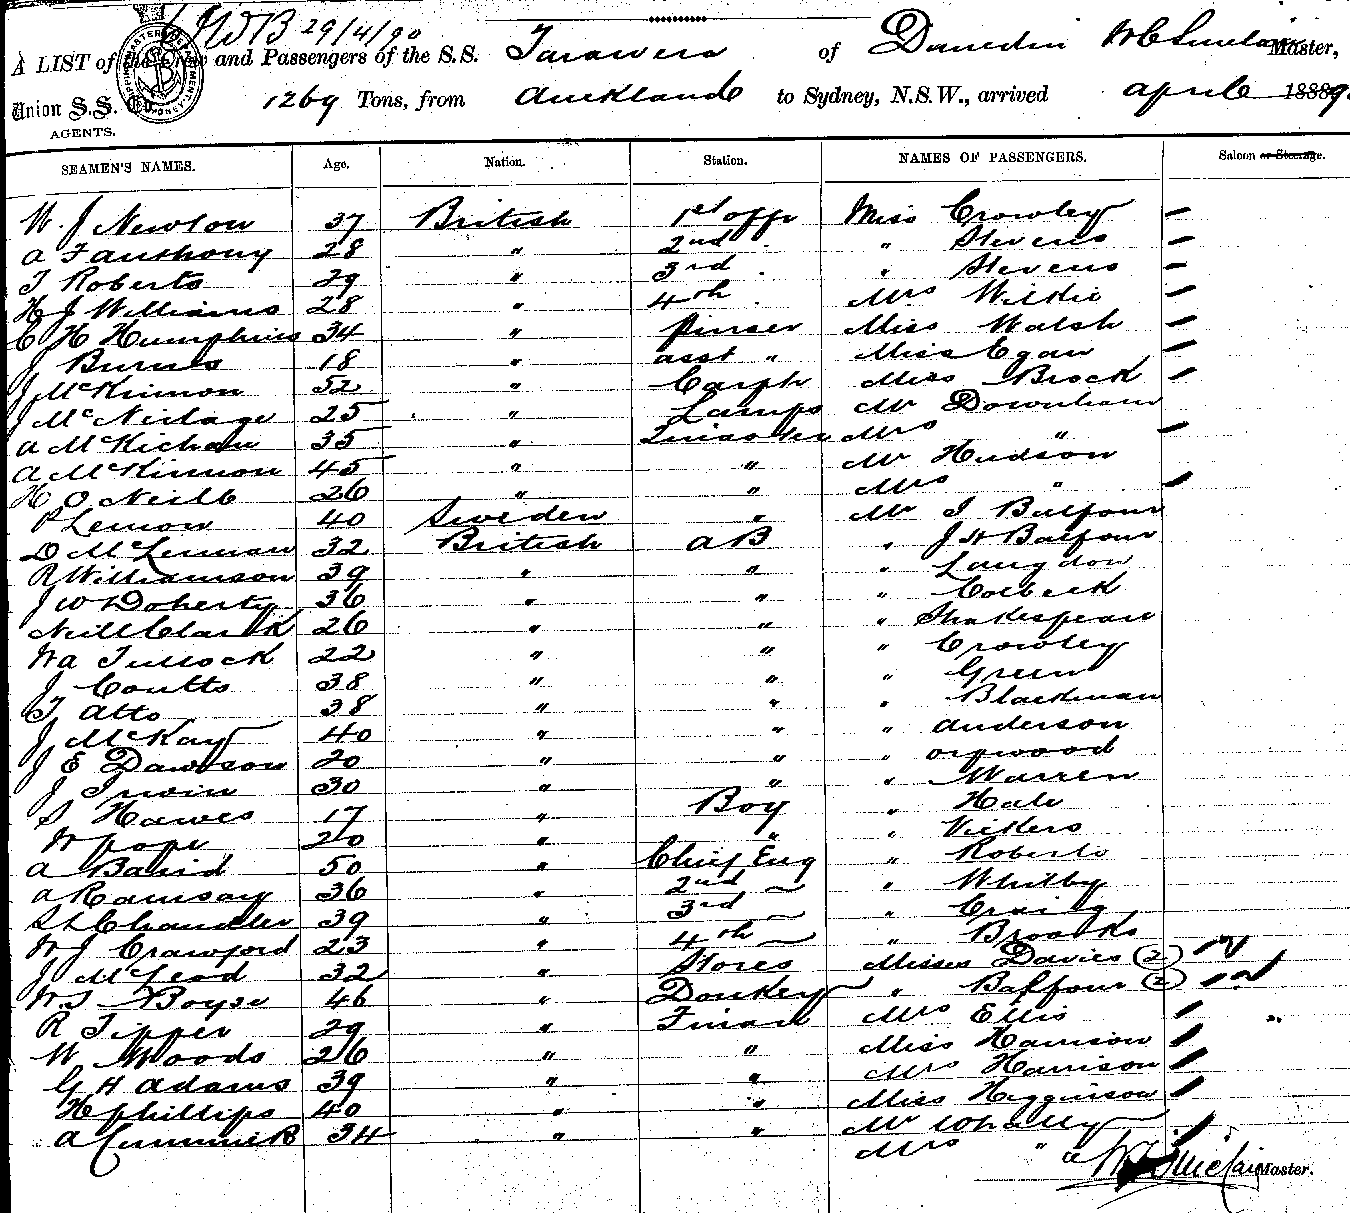 29/4/90
A LIST of the Crew and Passengers of the S.S. Tarawera of Dunedin W C Sinclair Master,
Union S.S. Co. 1269 Tons, from Auckland to Sydney, N.S.W., arrived april 1889
AGENTS.
SEAMEN'S NAMES. Age. Nation. Station. NAMES OF PASSENGERS. Saloon or Steerage.
W. J Newton 37 British 1st offr Miss Crowley
a F anthony 28 " 2nd " Stevens
T Roberts 29 " 3rd " Stevens
H J Williams 28 " 4th Mrs Wilkie
C H Humphries 34 " purser Miss Walsh
J Burns 18 " asst " Miss Egan
J McKinnon 52 " Carptr Miss Brock
J McNeilage 25 " Lamps Mr Downham
a McKichan 35 " Mrs "
a McKinnon 45 " " Mr Hudson
H O Neill 26 " " Mrs "
P Lemon 40 Sweden " Mr J Balfour
D McLennan 32 British a B " J H Balfour
R Williamson 39 " " " Langdon
J W Doherty 36 " " " Colbeck
Neill Clark 26 " " " Shakespear
Wa Tullock 22 " " " Crowley
J Coutts 38 " " " Green
T atto 38 " " " Blackman
J McKay 40 " " " anderson
J E Dawson 20 " " " orpwood
J Irwin 30 " " " Warren
S Hawes 17 " Boy " Hale
W pope 20 " " " Vickers
a Baird 50 " Chief Eng " Roberts
a Ramsay 36 " 2nd " Whitby
Chandler 39 " 3rd " Craig
W J Crawford 23 " 4th " Brooks
J McLeod 32 " Stores Misses Davies (2)
W. J Boyse 46 " Donkey " Balfour (2)
R Tipper 29 " Fireman Mrs Ellis "
W Woods 26 " " Miss Harrison
G H adams 39 " " Mrs Harrison
H phillips 40 " " Miss Higginson
a 34 " " Mr Whally
Mrs "
W C Sinclair Master.